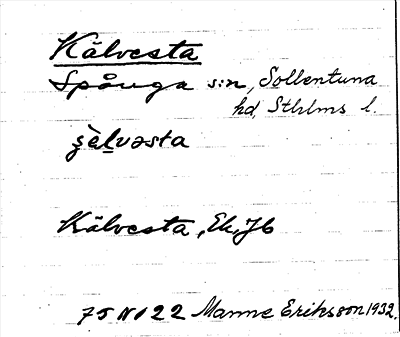 Kälvesta
Spånga s:n, Sollentuna
hd, Sthlms l.
sɛ̀lvəsta
Kälvesta, Ek, Jb
75 N 122 Manne Eriksson 1932.